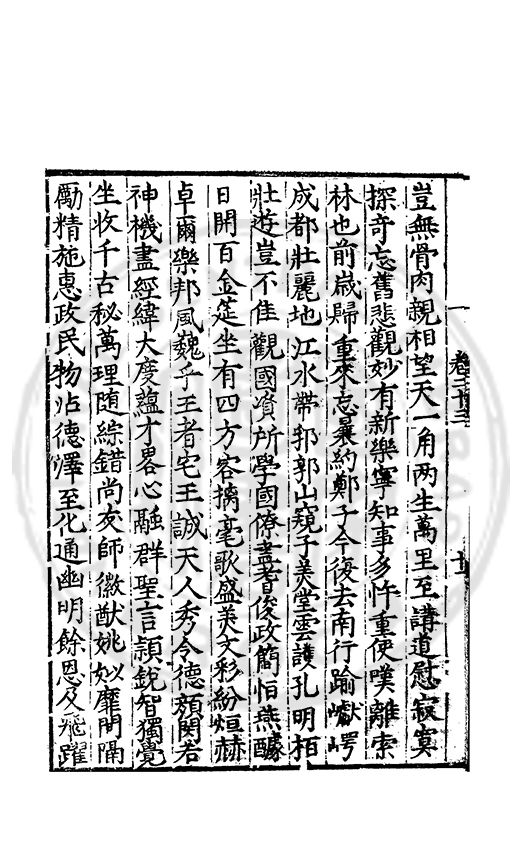 豈無骨肉親相望天一角兩生萬里至講道慰寂寞
探奇忘舊悲觀妙有新樂寧知事多忤重使嘆離索
林也前歲歸重來忘曩約鄭子今復去南行踰巘崿
成都壯麗地江水帶郛郭山窺子美堂雲護孔明栢
壯遊豈不佳觀國資所學國僚盡耆俊政簡恒燕醵
日開百金筵坐有四方客摛毫歌盛美文彩紛烜赫
卓爾樂邦風魏乎王者宅王誠天人秀令德類閎若
神機盡經緯大度蘊才畧心融群聖言穎銳智獨覺
坐收千古秘萬理隨綜錯尚友師徽猷姚姒靡間隔
勵精施惠政民物沾德澤至化通幽明餘恩及飛躍
卷二十三